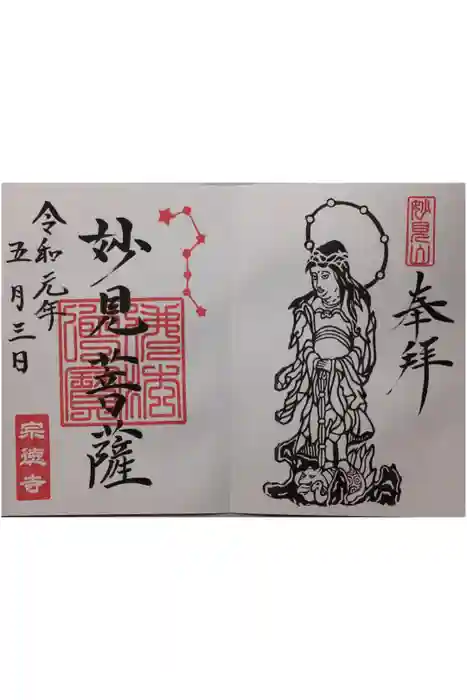 妙見山
奉拝
妙見菩薩
佛法僧寶
令和元年
五月三日
宗徳寺